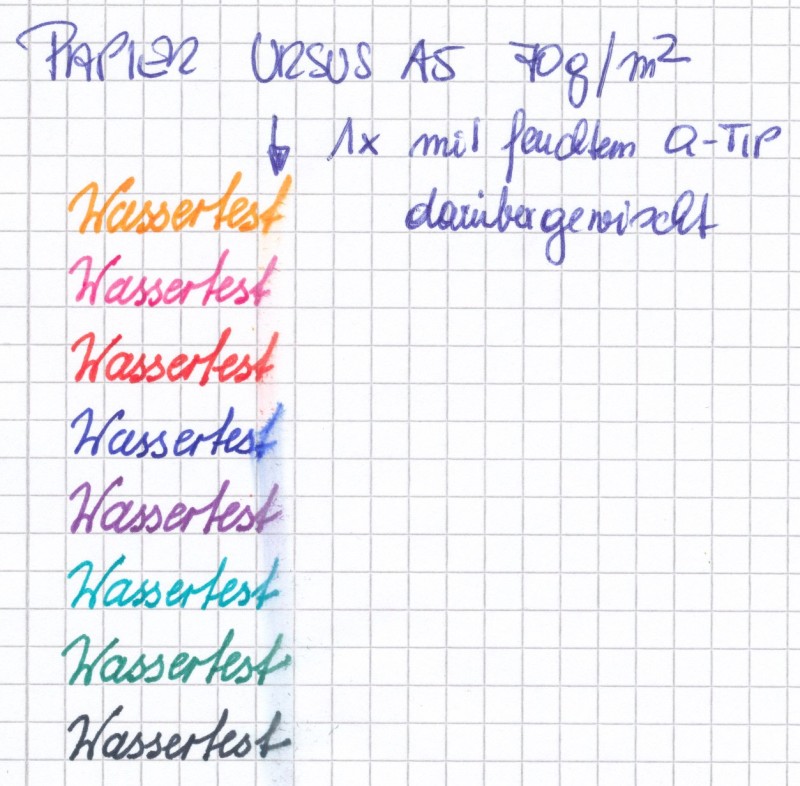 PAPIER URSUS A5 70g/m²
↓ 1x mit feuchtem Q-TIP
darübergewischt
Wassertest
Wassertest
Wassertest
Wassertest
Wassertest
Wassertest
Wassertest
Wassertest